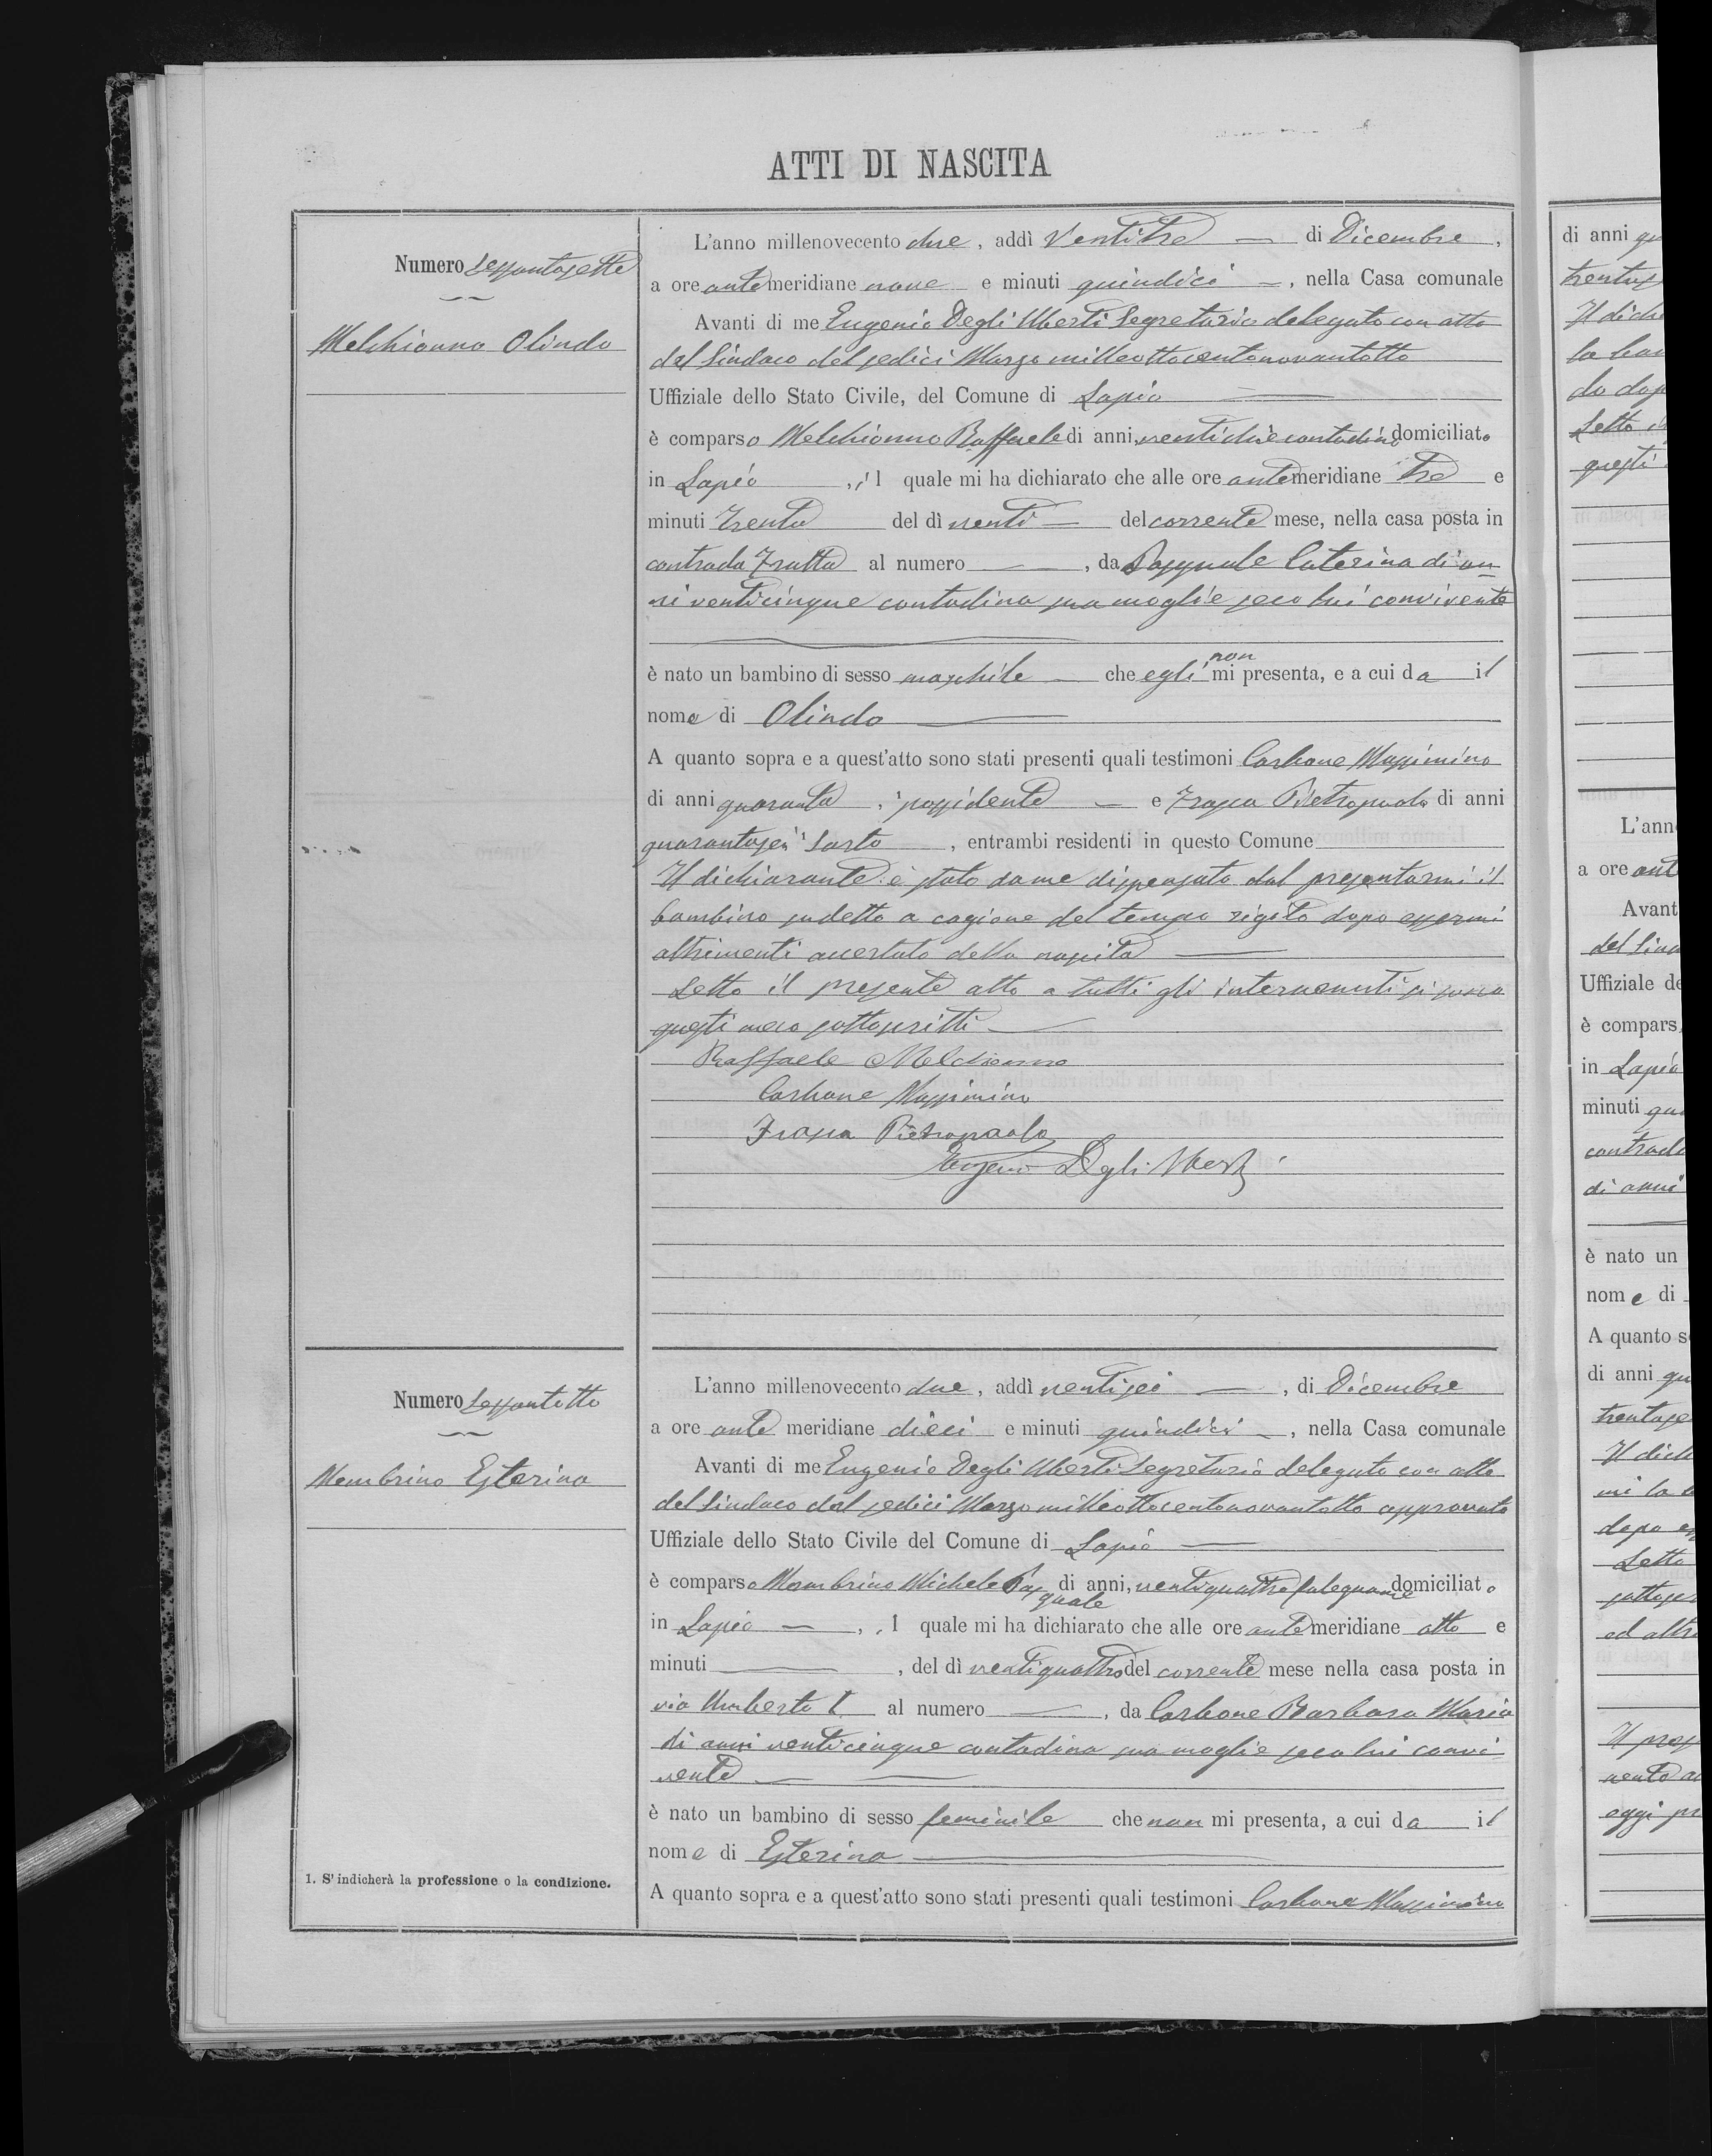 ATTI DI NASCITA
Numero Sessantasette
Melchionno Olindo
L'anno millenovecento due, addì Ventitre — di Dicembre,
a ore antemeridiane nove e minuti quindici —, nella Casa comunale
Avanti di me Eugenio Degli Uberti Segretario delegato con atto
del Sindaco del sedici Marzo milleottocentonovantotto
Uffiziale dello Stato Civile, del Comune di Lapio —
è comparso Melchionno Raffaele di anni, ventidue contadino domiciliato
in Lapio, il quale mi ha dichiarato che alle ore antemeridiane tre e
minuti trenta del dì venti — del corrente mese, nella casa posta in
contrada Fratta al numero —, da Pasquale Caterina di an-
ni venticinque contadina sua moglie seco lui convivente
è nato un bambino di sesso maschile — che egli non mi presenta, e a cui da il
nome di Olindo —
A quanto sopra e a quest'atto sono stati presenti quali testimoni Carbone Massimino
di anni quaranta, possidente — e Frasca Pietropaolo di anni
quarantasei sarto, entrambi residenti in questo Comune
Il dichiarante è stato da me dispensato dal presentarmi il
bambino sudetto a cagione del tempo rigido dopo essermi
altrimenti accertato della nascita —
Letto il presente atto a tutti gli intervenuti si sono
questi meco sottoscritti —
Raffaele Melchionno
Carbone Massimino
Frasca Pietropaolo
Eugenio Degli Uberti
Numero Sessantotto
Mombrino Esterina
L'anno millenovecento due, addì ventisei —, di Dicembre
a ore antemeridiane dieci e minuti quindici —, nella Casa comunale
Avanti di me Eugenio Degli Uberti Segretario delegato con atto
del Sindaco del sedici Marzo milleottocentonovantotto approvato
Uffiziale dello Stato Civile del Comune di Lapio —
è comparso Mombrino Michele Pasquale di anni, ventiquattro falegname domiciliato
in Lapio —, il quale mi ha dichiarato che alle ore antemeridiane otto e
minuti —, del dì ventiquattro del corrente mese nella casa posta in
via Umberto I al numero —, da Carbone Barbara Maria
di anni venticinque contadina sua moglie seco lui convi
vente —
è nato un bambino di sesso feminile che non mi presenta, a cui da il
nome di Esterina —
1. S'indicherà la professione o la condizione.
A quanto sopra e a quest'atto sono stati presenti quali testimoni Carbone Massimino
di anni
Il dich
L'ann
a ore ant
Avant
del Sin
Uffiziale de
è compars
in Lapio
minuti
contrada
di anni
è nato un
nome di
A quanto s
di anni
Letto